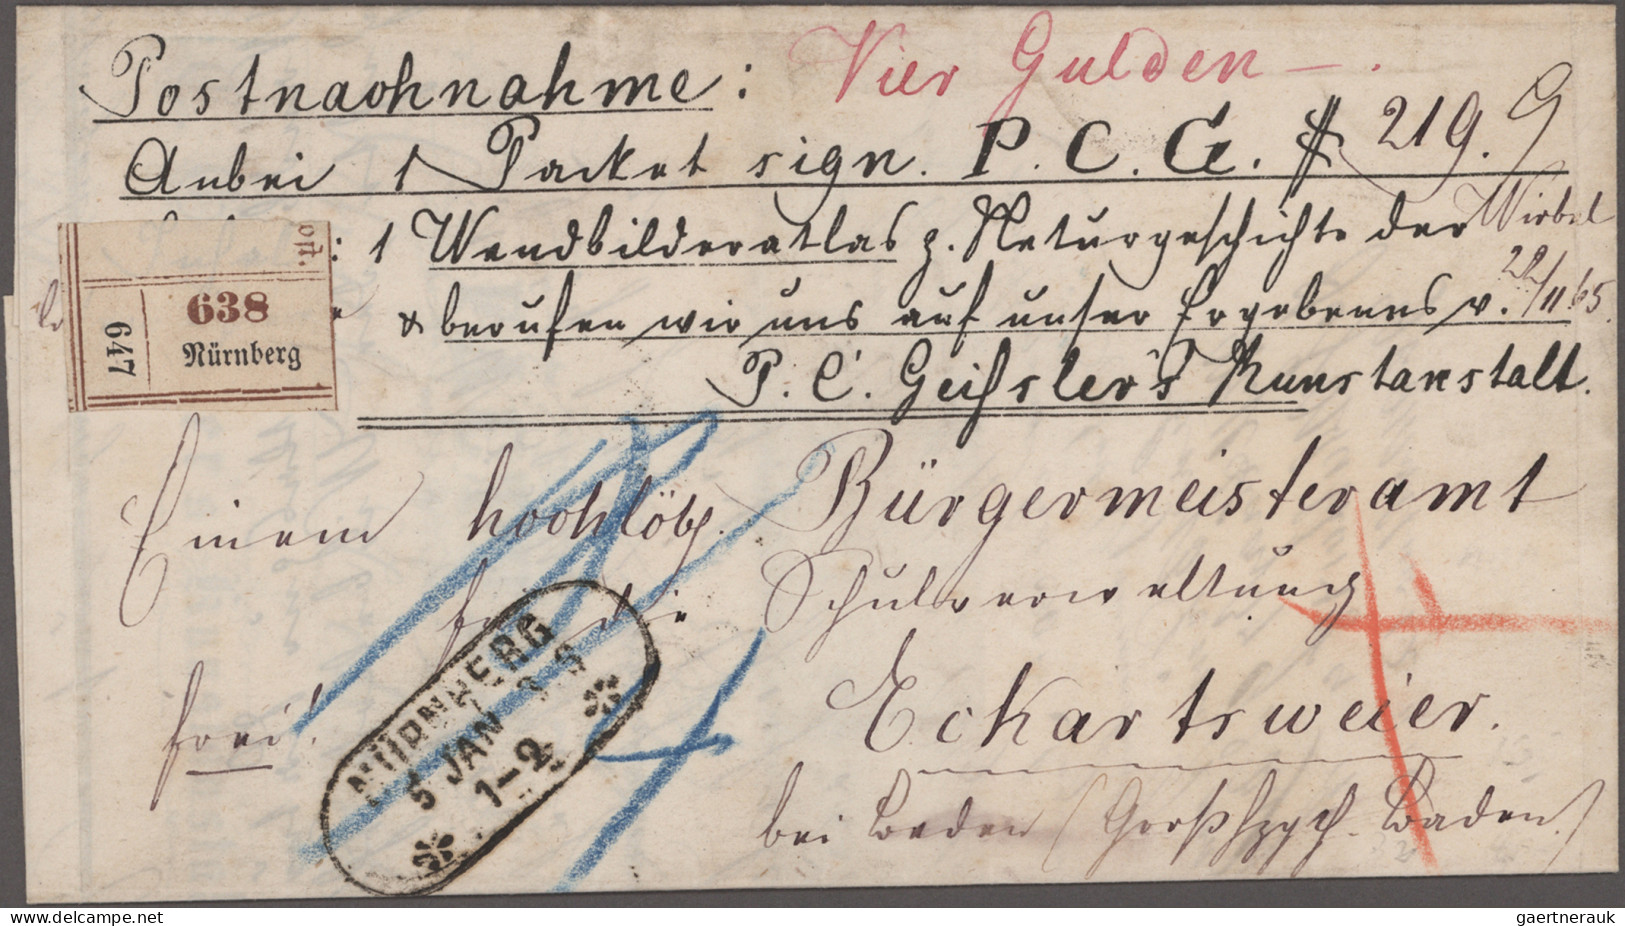 Postnachnahme: Vier Gulden —.
Anbei 1 Packet sign. P. C. G. 219. 9
: 1 Wandbilderatlas z. Naturgeschichte der Wirbel
& berufen wir uns auf unser Ergebenes v. 22/11 65.
P. C. Geißler's Kunstanstalt.
638
Nürnberg
647
Einem hochlöbl. Bürgermeisteramt
für die Schulverwaltung
frei!
Eckartsweier.
bei Baden (Großhzgth. Baden.)
NÜRNBERG
5 JAN
1-2
gaertnerauk